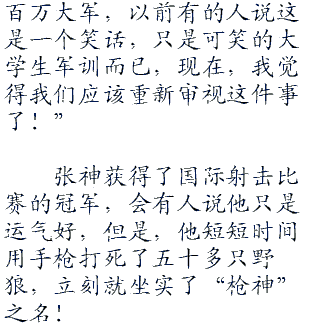 百万大军，以前有的人说这
是一个笑话，只是可笑的大
学生军训而已，现在，我觉
得我们应该重新审视这件事
了！”
张神获得了国际射击比
赛的冠军，会有人说他只是
运气好，但是，他短短时间
用手枪打死了五十多只野
狼，立刻就坐实了“枪神”
之名！